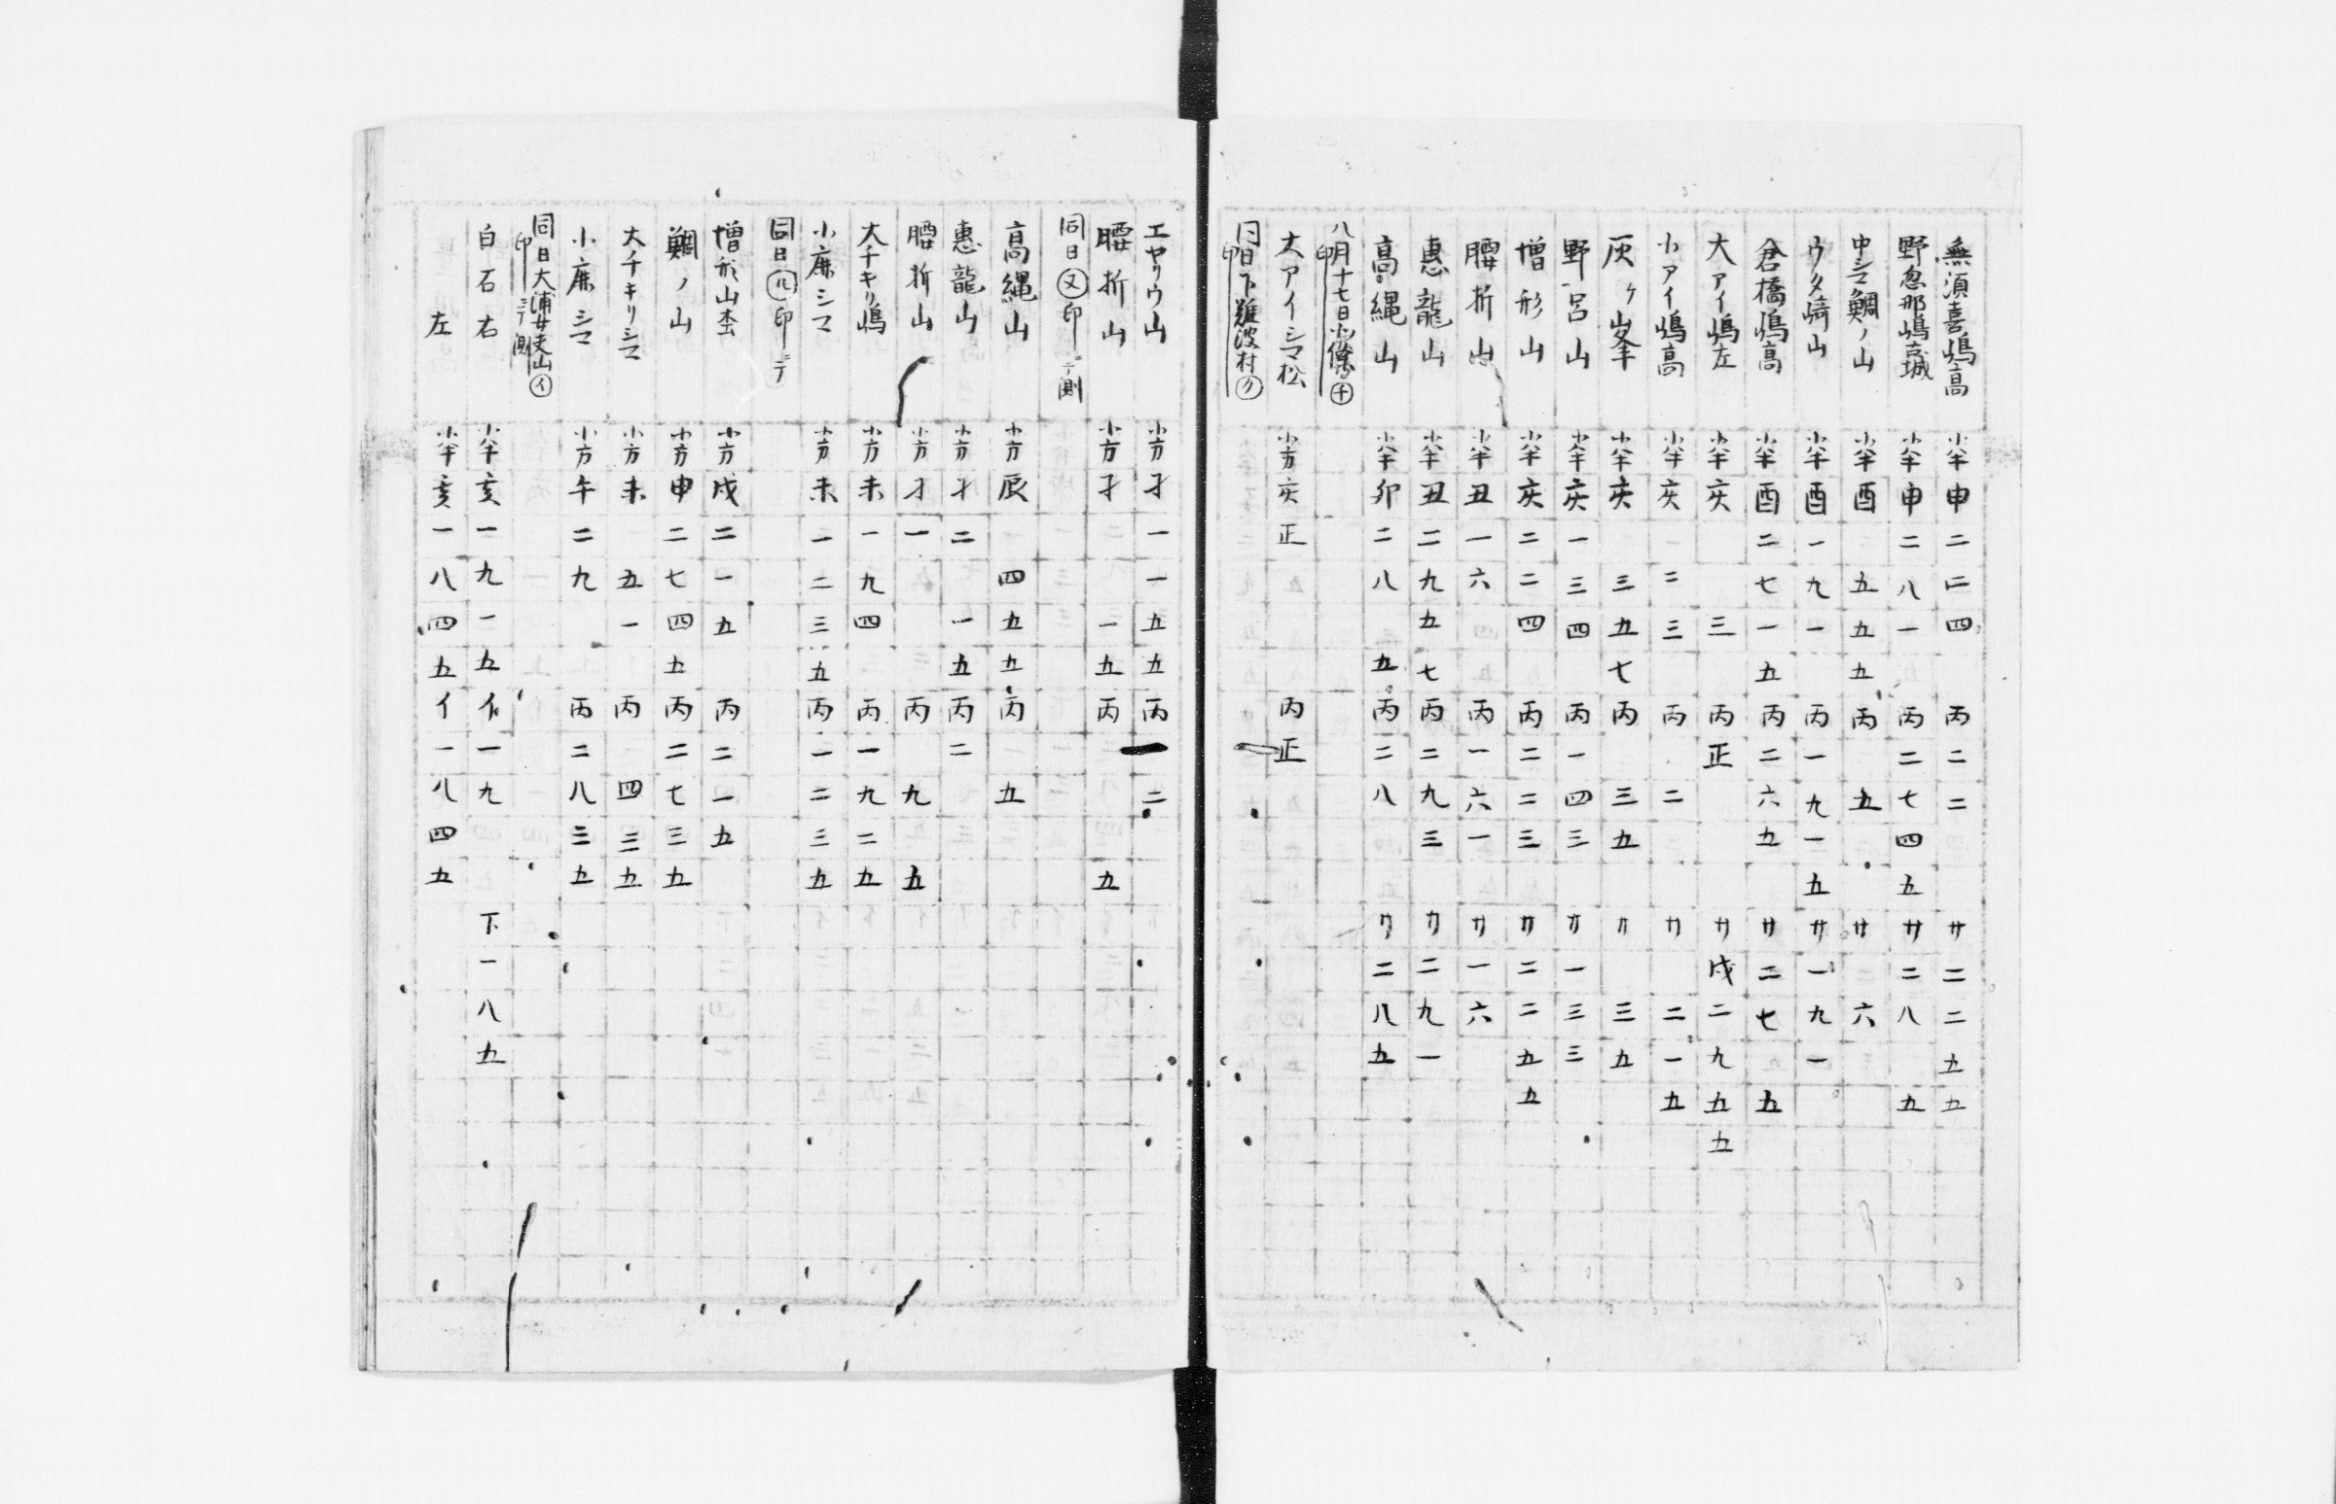 無須喜嶋高 小半申二二四 丙二二 廿二二五五
野忽那嶋高城 小半申二八一 丙二七四五 廿二八五
中シマ鯛ノ山 小半酉五五五 丙五 廿六
ウタ崎山 小半酉一九一 丙一九一五 廿一九一
倉橋嶋高 小半酉二七一五 丙二六五 廿二七五
大アイ嶋左 小半亥三 丙正 廿戌二九五五
小アイ嶋高 小半亥二三 丙二 廿二一五
灰ヶ峯 小半亥三五七 丙三五 廿三五
野呂山 小半亥一三四 丙一四三 廿一三三
増形山 小半亥二二四 丙二二三 廿二二五五
腰折山 小半丑一六 丙一六一 廿一六
惠龍山 小半丑二九五七 丙二九三 廿二九一
高縄山 小半卯二八五 丙二八 廿二八五
八月十七日 印
大アイシマ松 小方亥正 丙正
同日下難波村 印
エヤリウ山 小方子一一五五 丙一二
腰折山 小方子一五 丙五
同日又印ニテ測
高縄山 小方辰四五五 丙五
惠龍山 小方子二一五 丙二
腰折山 小方子一 丙九五
大チキリ嶋 小方未一九四 丙一九二五
小鹿シマ 小方未一二三五 丙一二三五
同日ル印ニテ
増形山 小方戌二一五 丙二一五
鯛ノ山 小方申二七四五 丙二七三五
大チキリシマ 小方未五一 丙四三五
小鹿シマ 小方午二九 丙二八三五
同日大浦 山イ印ニテ測
白石右 小半亥一九一五 イ一九 下一八五
左 小半亥一八四五 イ一八四五